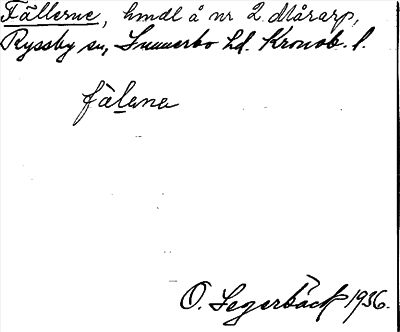 Fällerne, hmdl å nr 2 Mårarp,
Ryssby sn, Sunnerbo hd. Kronob. l.
fälana
O. Segerbäck 1936.